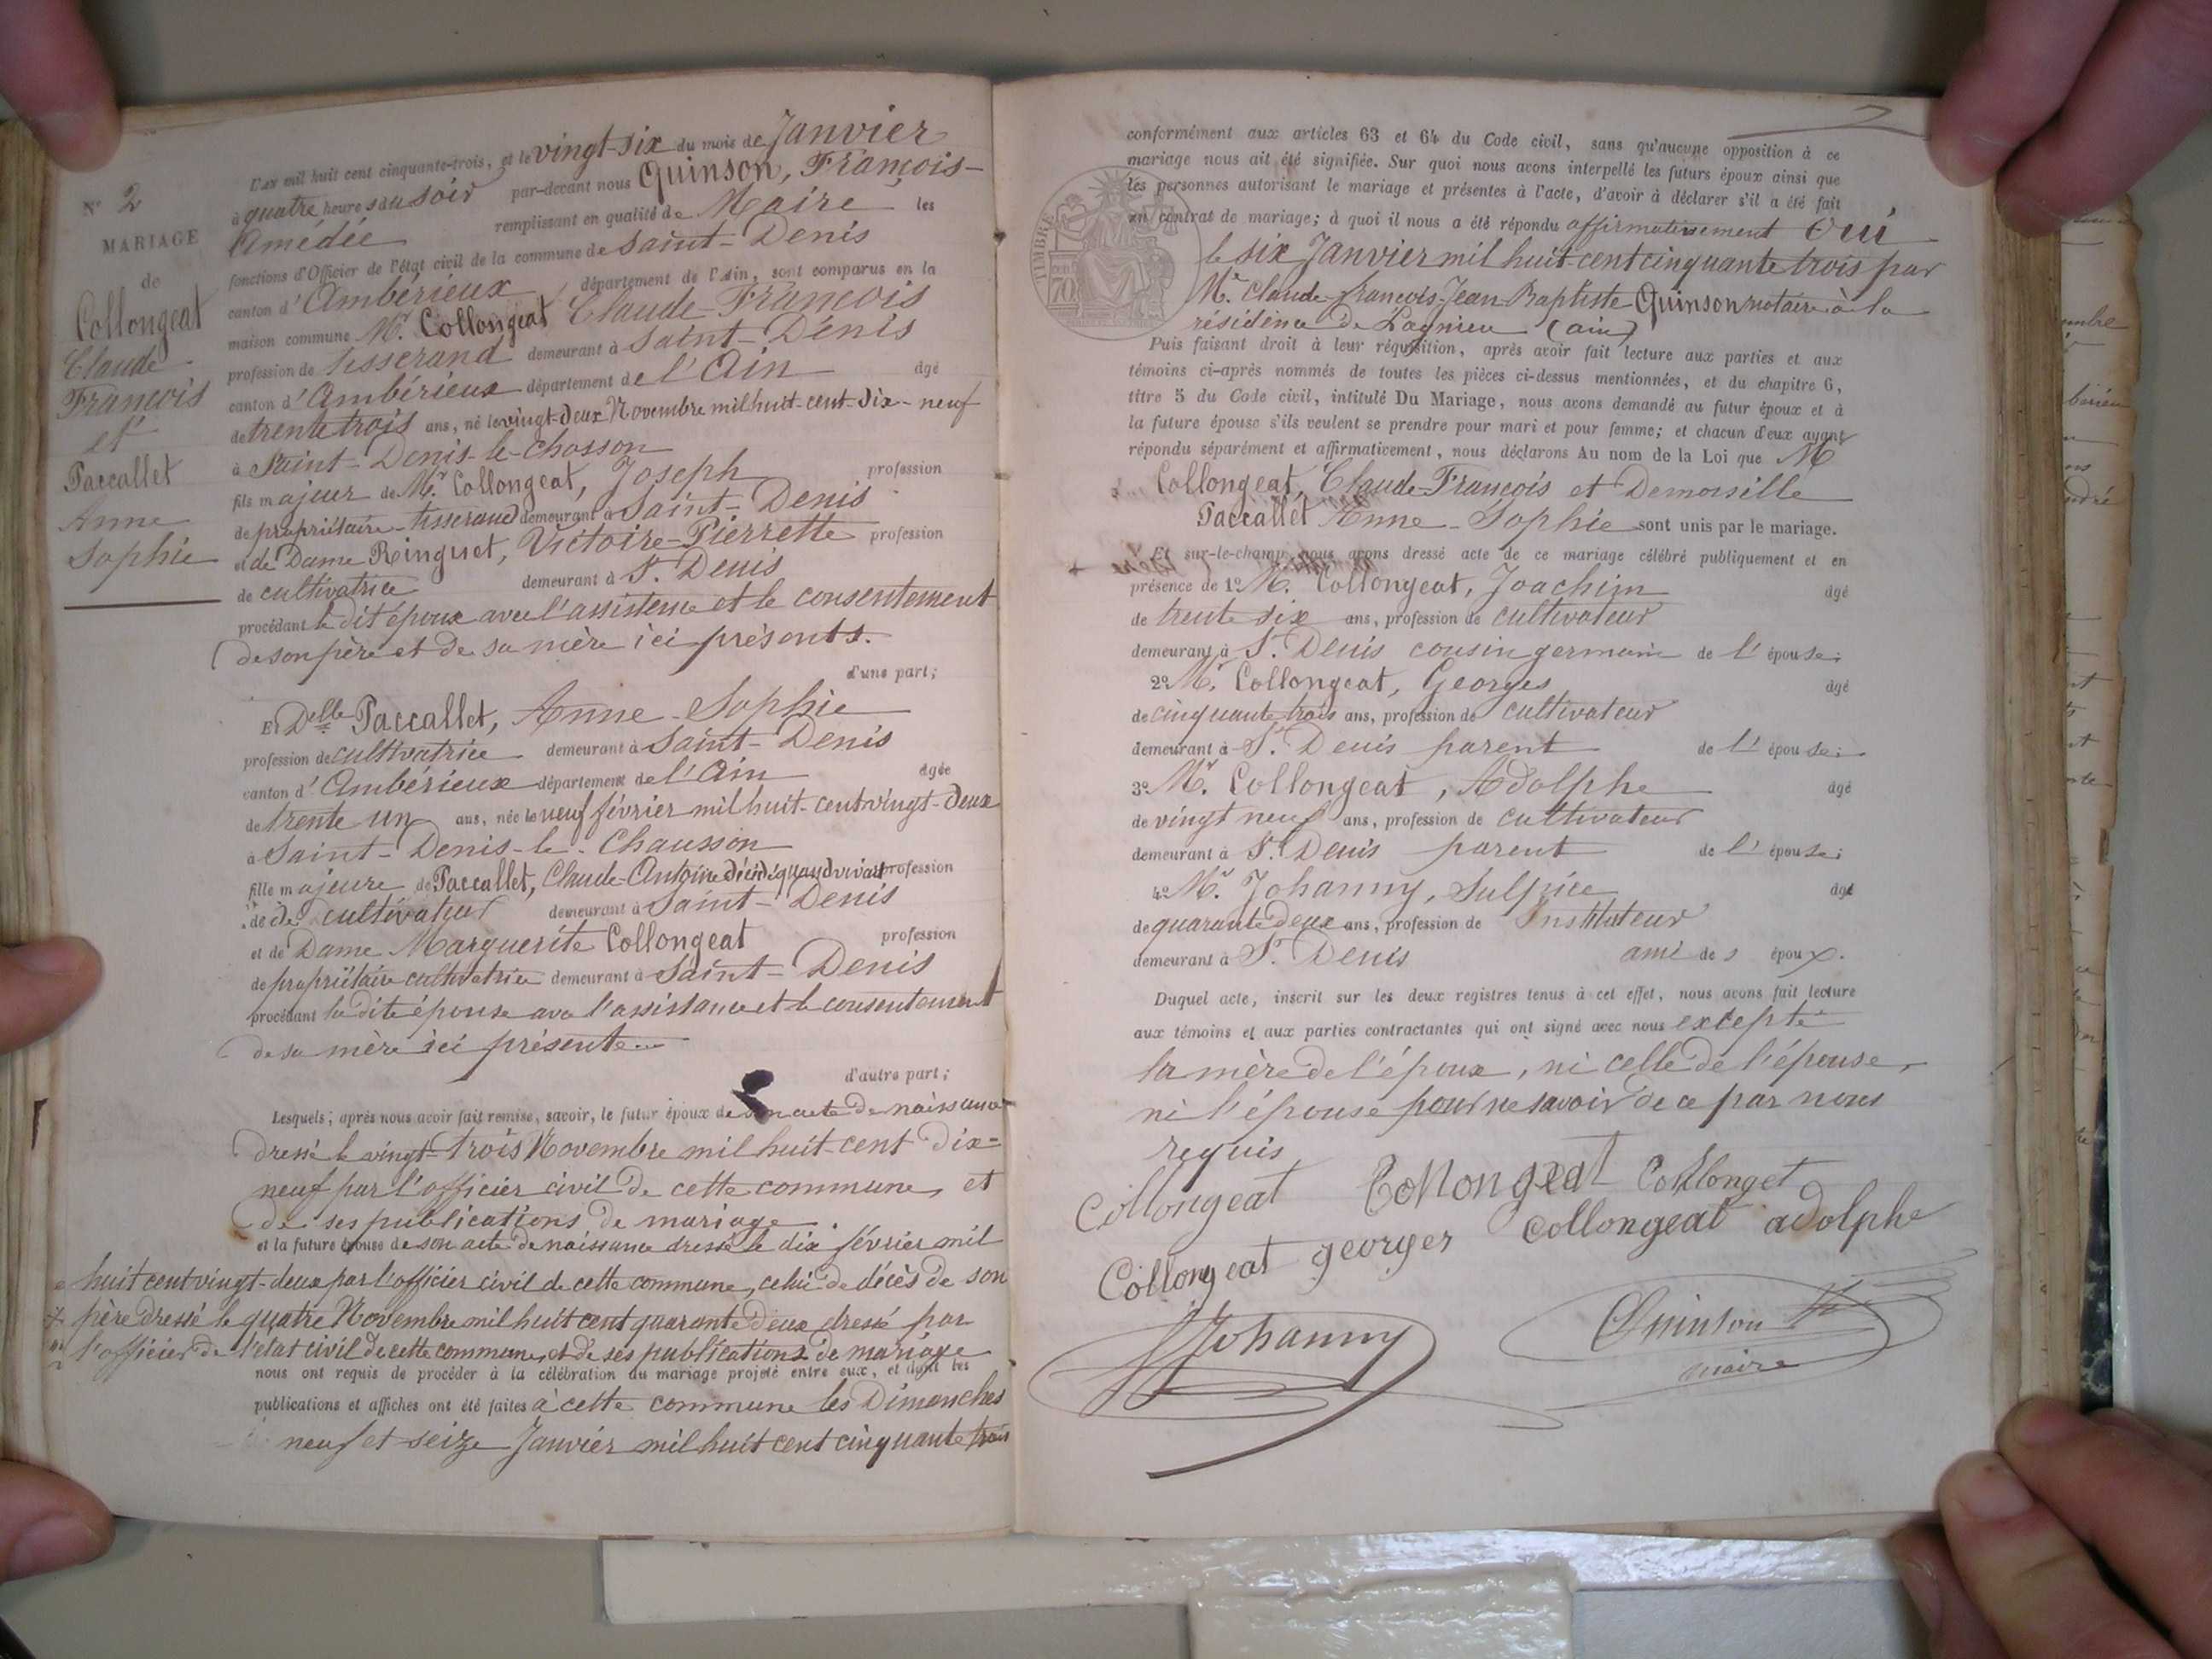 N° 2
MARIAGE
de
Collongeat
Claude
François
et
Paccallet
Anne
Sophie
L'an mil huit cent cinquante-trois, et le vingt-six du mois de Janvier
à quatre heures du soir par-devant nous Quinson, François-
Amédée remplissant en qualité de Maire les
fonctions d'Officier de l'état civil de la commune de Saint-Denis
canton d'Ambérieux, département de l'Ain, sont comparus en la
maison commune Mr. Collongeat Claude François
profession de tisserand demeurant à Saint-Denis
canton d'Ambérieux département de l'Ain âgé
de trente trois ans, né le vingt-deux Novembre mil huit-cent-dix-neuf
à Saint-Denis-le-Chosson
fils majeur de Mr. Collongeat, Joseph profession
de propriétaire-tisserand demeurant à Saint-Denis
et de Dame Ringuet, Victoire-Pierrette profession
de cultivatrice demeurant à St. Denis
procédant le dit époux avec l'assistence et le consentement
de son père et de sa mère ici présents.
d'une part;
Et Delle Paccallet, Anne-Sophie
profession de cultivatrice demeurant à Saint-Denis
canton d'Ambérieux département de l'Ain âgée
de trente un ans, née le neuf février mil huit-cent vingt-deux
à Saint-Denis-le-Chausson
fille majeure de Paccallet, Claude-Antoine décédé quand vivait profession
de cultivateur demeurant à Saint-Denis
et de Dame Marguerite Collongeat profession
de propriétaire cultivatrice demeurant à Saint-Denis
procédant la dite épouse avec l'assistance et le consentement
de sa mère ici présente
d'autre part;
Lesquels, après nous avoir fait remise, savoir, le futur époux de son acte de naissance
dressé le vingt-trois Novembre mil huit-cent dix-
neuf par l'officier civil de cette commune, et
de ses publications de mariage
et la future épouse de son acte de naissance dressé le dix février mil
huit cent vingt-deux par l'officier civil de cette commune, celui de décès de son
père dressé le quatre Novembre mil huit cent quarante deux dressé par
l'officier de l'état civil de cette commune, et de ses publications de mariage
nous ont requis de procéder à la célébration du mariage projeté entre eux, et dont les
publications et affiches ont été faites à cette commune les Dimanches
neuf et seize Janvier mil huit cent cinquante trois
2
conformément aux articles 63 et 64 du Code civil, sans qu'aucune opposition à ce
mariage nous ait été signifiée. Sur quoi nous avons interpellé les futurs époux ainsi que
les personnes autorisant le mariage et présentes à l'acte, d'avoir à déclarer s'il a été fait
un contrat de mariage; à quoi il nous a été répondu affirmativement oui
TIMBRE
70
le six Janvier mil huit-cent cinquante trois par
Mr. Claude-françois-Jean-Baptiste Quinson notaire à la
résidence de Lagnieu (ain)
Puis faisant droit à leur réquisition, après avoir fait lecture aux parties et aux
témoins ci-après nommés de toutes les pièces ci-dessus mentionnées, et du chapitre 6,
titre 5 du Code civil, intitulé Du Mariage, nous avons demandé au futur époux et à
la future épouse s'ils veulent se prendre pour mari et pour femme; et chacun d'eux ayant
répondu séparément et affirmativement, nous déclarons Au nom de la Loi que Mr
Collongeat, Claude-François et Demoiselle
Paccallet Anne-Sophie sont unis par le mariage.
Et sur-le-champ nous avons dressé acte de ce mariage célébré publiquement et en
présence de 1° M. Collongeat, Joachim âgé
de trente six ans, profession de cultivateur
demeurant à St. Denis cousin germain de l'épouse;
2° Mr. Collongeat, Georges âgé
de cinquante trois ans, profession de cultivateur
demeurant à St. Denis parent de l'épouse;
3° Mr. Collongeat, Adolphe âgé
de vingt neuf ans, profession de cultivateur
demeurant à St. Denis parent de l'épouse;
4° Mr. Johanny, Sulpice âgé
de quarante deux ans, profession de Instituteur
demeurant à St. Denis ami des époux.
Duquel acte, inscrit sur les deux registres tenus à cet effet, nous avons fait lecture
aux témoins et aux parties contractantes qui ont signé avec nous excepté
la mère de l'époux, ni celle de l'épouse,
ni l'épouse pour ne savoir de ce par nous
requis
Collongeat Collongeat Collonget
Collongeat georges Collongeat adolphe
Johanny Quinson
maire